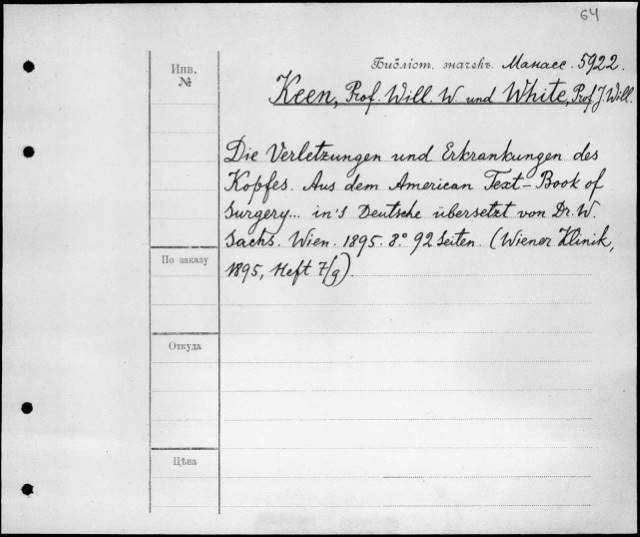 64
Библіот. значекъ. Манасс. 5922.
Инв.
№
Keen, Prof. Will. W. und White, Prof. J. Will.
Die Verletzungen und Erkrankungen des
Kopfes. Aus dem American Text-Book of
Surgery... in's Deutsche übersetzt von Dr. W.
Sachs. Wien. 1895. 8.° 92 Seiten. (Wiener Klinik,
1895, Heft 7/9).
По заказу
Откуда
Цѣна